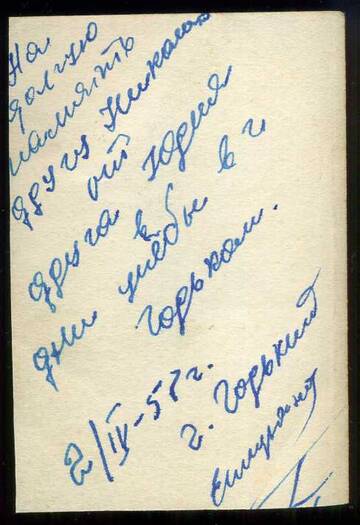 На
долгую
память
другу Николаю
от
друга Юдия
в
дни учёбы в г
Горьком.
2/IV-57г.
г. Горький